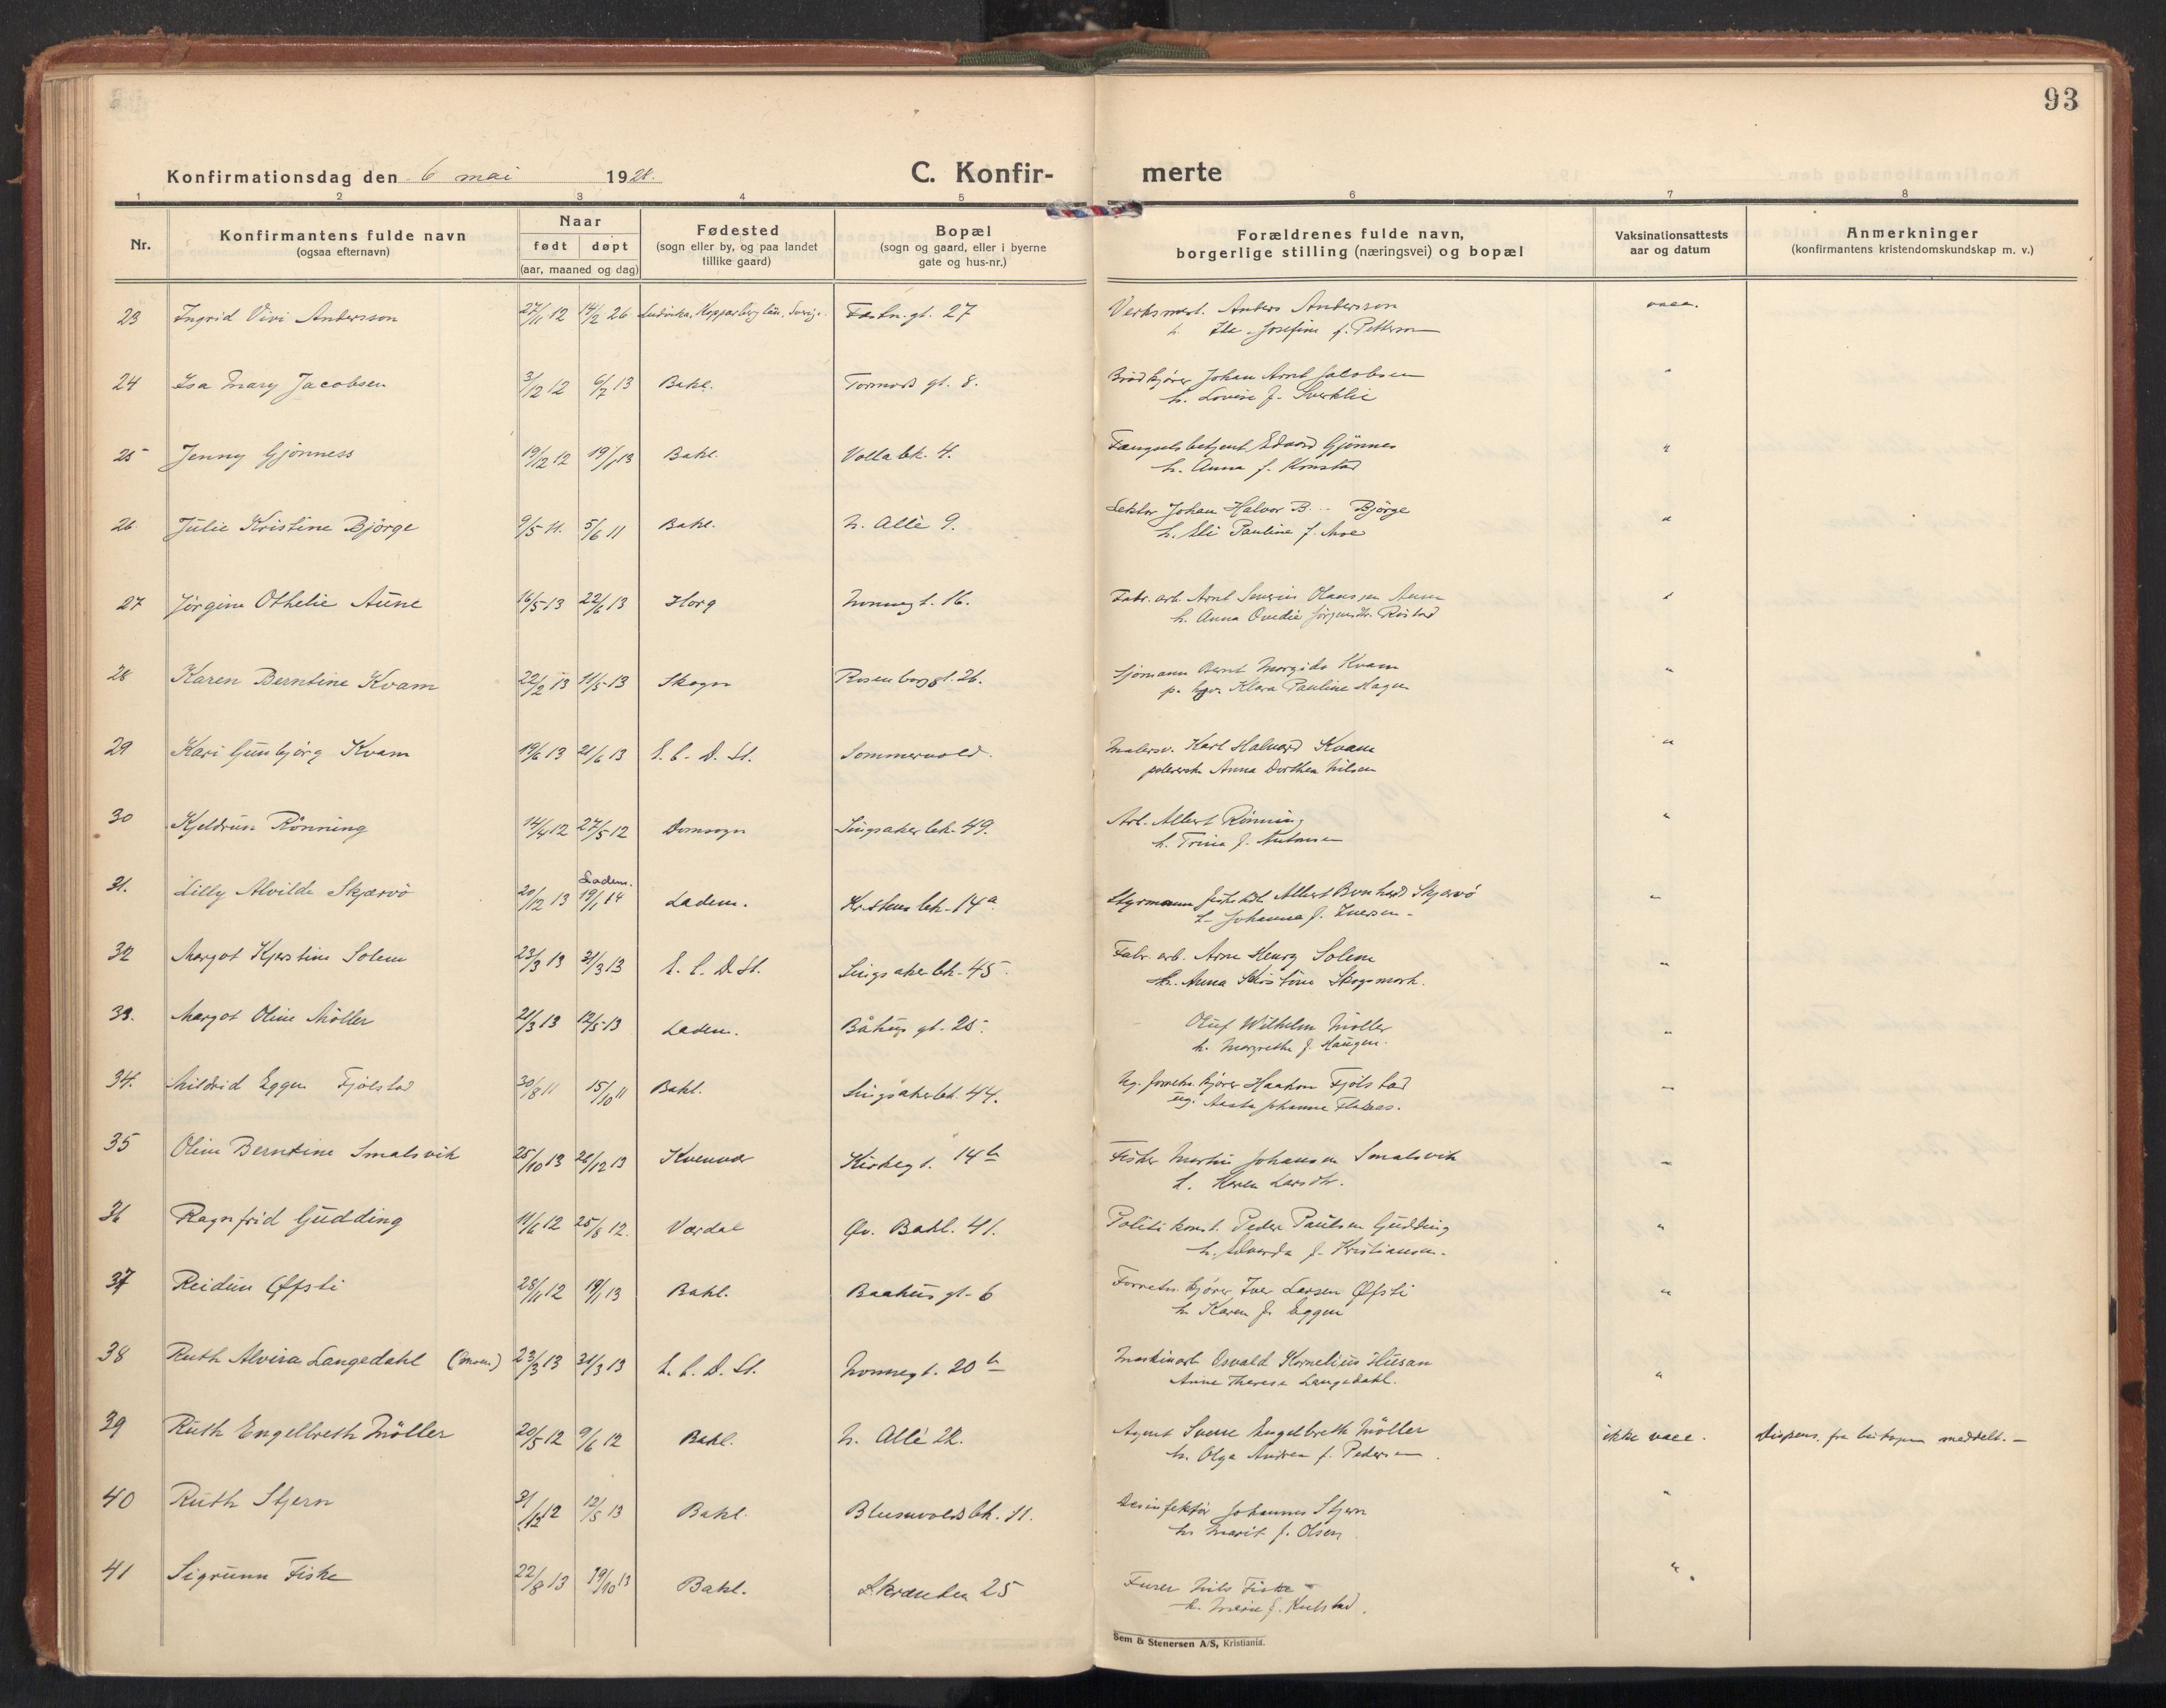 93
Konfirmationsdag den 6 mai 1928.
C. Konfir- merte
1 2 3 4 5 6 7 8
Nr.
Konfirmantens fulde navn
(ogsaa efternavn)
Naar
født døpt
(aar, maaned og dag)
Fødested
(sogn eller by, og paa landet
tillike gaard)
Bopæl
(sogn og gaard, eller i byerne
gate og hus-nr.)
Forældrenes fulde navn,
borgerlige stilling (næringsvei) og bopæl
Vaksinationsattests
aar og datum
Anmerkninger
(konfirmantens kristendomskundskap m. v.)
23 Ingrid Vivi Andersson 27/11 12 14/2 26 Ludvika, Kopparberg län, Sverige. Festn.gt. 27 Verksmest. Anders Andersson vacc.
h. Josefine f. Petterson
24 Isa Mary Jacobsen 3/12 12 6/7 13 Bakl. Tormods gt. 8. Brödkjörer Johan Arnt Jacobsen "
h. Lovise f. Sverklie
25 Jenny Gjönness 19/12 12 19/1 13 Bakl. Volla bk. 4. Fængselsbetjent Edvard Gjönnes "
h. Anna f. Konstad
26 Julie Kristine Bjørge 9/5 11. 5/6 11 Bakl. N. Allè 9. Lektor Johan Halvor B... Bjørge "
h. Eli Pauline f. Moe
27 Jørgine Othelie Aune 16/5 13 22/6 13 Horg Nonnegt. 16. Fabr. arb. Arnt Senerius Hanssen Aune "
h. Anna Ovedie Jørgensdtr. Røstad
28 Karen Berntine Kvam 22/2 13 11/5 13 Skogn Rosenborggt. 26. Sjömann Bernt Kvam "
p. Klara Pauline Hagen
29 Kari Gunbjørg Kvam 19/6 13 21/6 13 E. C. D. St. Sommervold. Malersv. Karl Halvard Kvam "
Anna Dorthea Nilsen
30 Kjeldrun Rönning 14/4 12 27/5 12 Domsogn Singsaker bk. 49. Arb. Albert Rönning "
h. Trina f. Antonsen
31. Lilly Alvilde Skjærvö 20/12 13 Ladem. 19/1 14 Ladem. Kristens bk. 14a Styrmann Albert Bernhard Skjærvö "
h. Johanna f. Iversen.
32 Margot Kjerstine Solem 23/3 13 31/3 13 E. C. D. St. Singsaker bk. 45. Fabr. arb. Arne Henry Solem "
h. Anna Kristine Skogsmark.
33. Margot Oline Möller 21/3 13 12/5 13 Ladem. Båhus gt. 25. Oluf Wilhelm Möller "
h. Margrethe f. Haugen.
34. Mildrid Eggen Fjölstad 30/8 11 15/10 11 Bakl. Singsaker bk. 44. Ug. forretn. kjörer Haakon Fjölstad "
ug. Aasta Johanne
35 Oline Berntine Smalsvik 25/10 13 26/12 13 Kvenvær Kirkegt. 14b Fisker Martin Johansen Smalsvik "
h. Karen Larsdtr.
36 Ragnfrid Gudding 11/6 12 25/8 12. Værdal Øv. Bakl. 41. Politikonst. Peder Paulsen Gudding "
h. f. Kristiansen.
37 Reidun Øfsti 28/11 12 19/1 13 Bakl. Baahus gt. 6 Forretn. kjörer Iver Larsen Øfsti "
h. Karen f. Eggen
38 Ruth Alvira Langedahl 23/3 13 31/3 13 E. C. D. St. Nonnegt. 20b Maskinarb. Osvald Kornelius Husan "
Anne Therese Langedahl.
39 Ruth Engelbreth Möller 20/5 12 9/6 12 Bakl. N. Allé 22. Agent Svene Engelbreth Möller ikke vacc. Dispens. fra biskopen meddelt. —
h. Olga Andrea f. Pedersen.
40 Ruth Stjern 31/12 12 12/5 13 Bakl. Blusuvolds bk. 11. Desinfektör Johannes Stjern "
h. Marit f. Olsen
41 Sigrunn Fiske 22/8 13 19/10 13 Bakl. Skrænten 25 Furer Nils Fiske "
h. f. Kulstad.
Sem & Stenersen A/S, Kristiania.